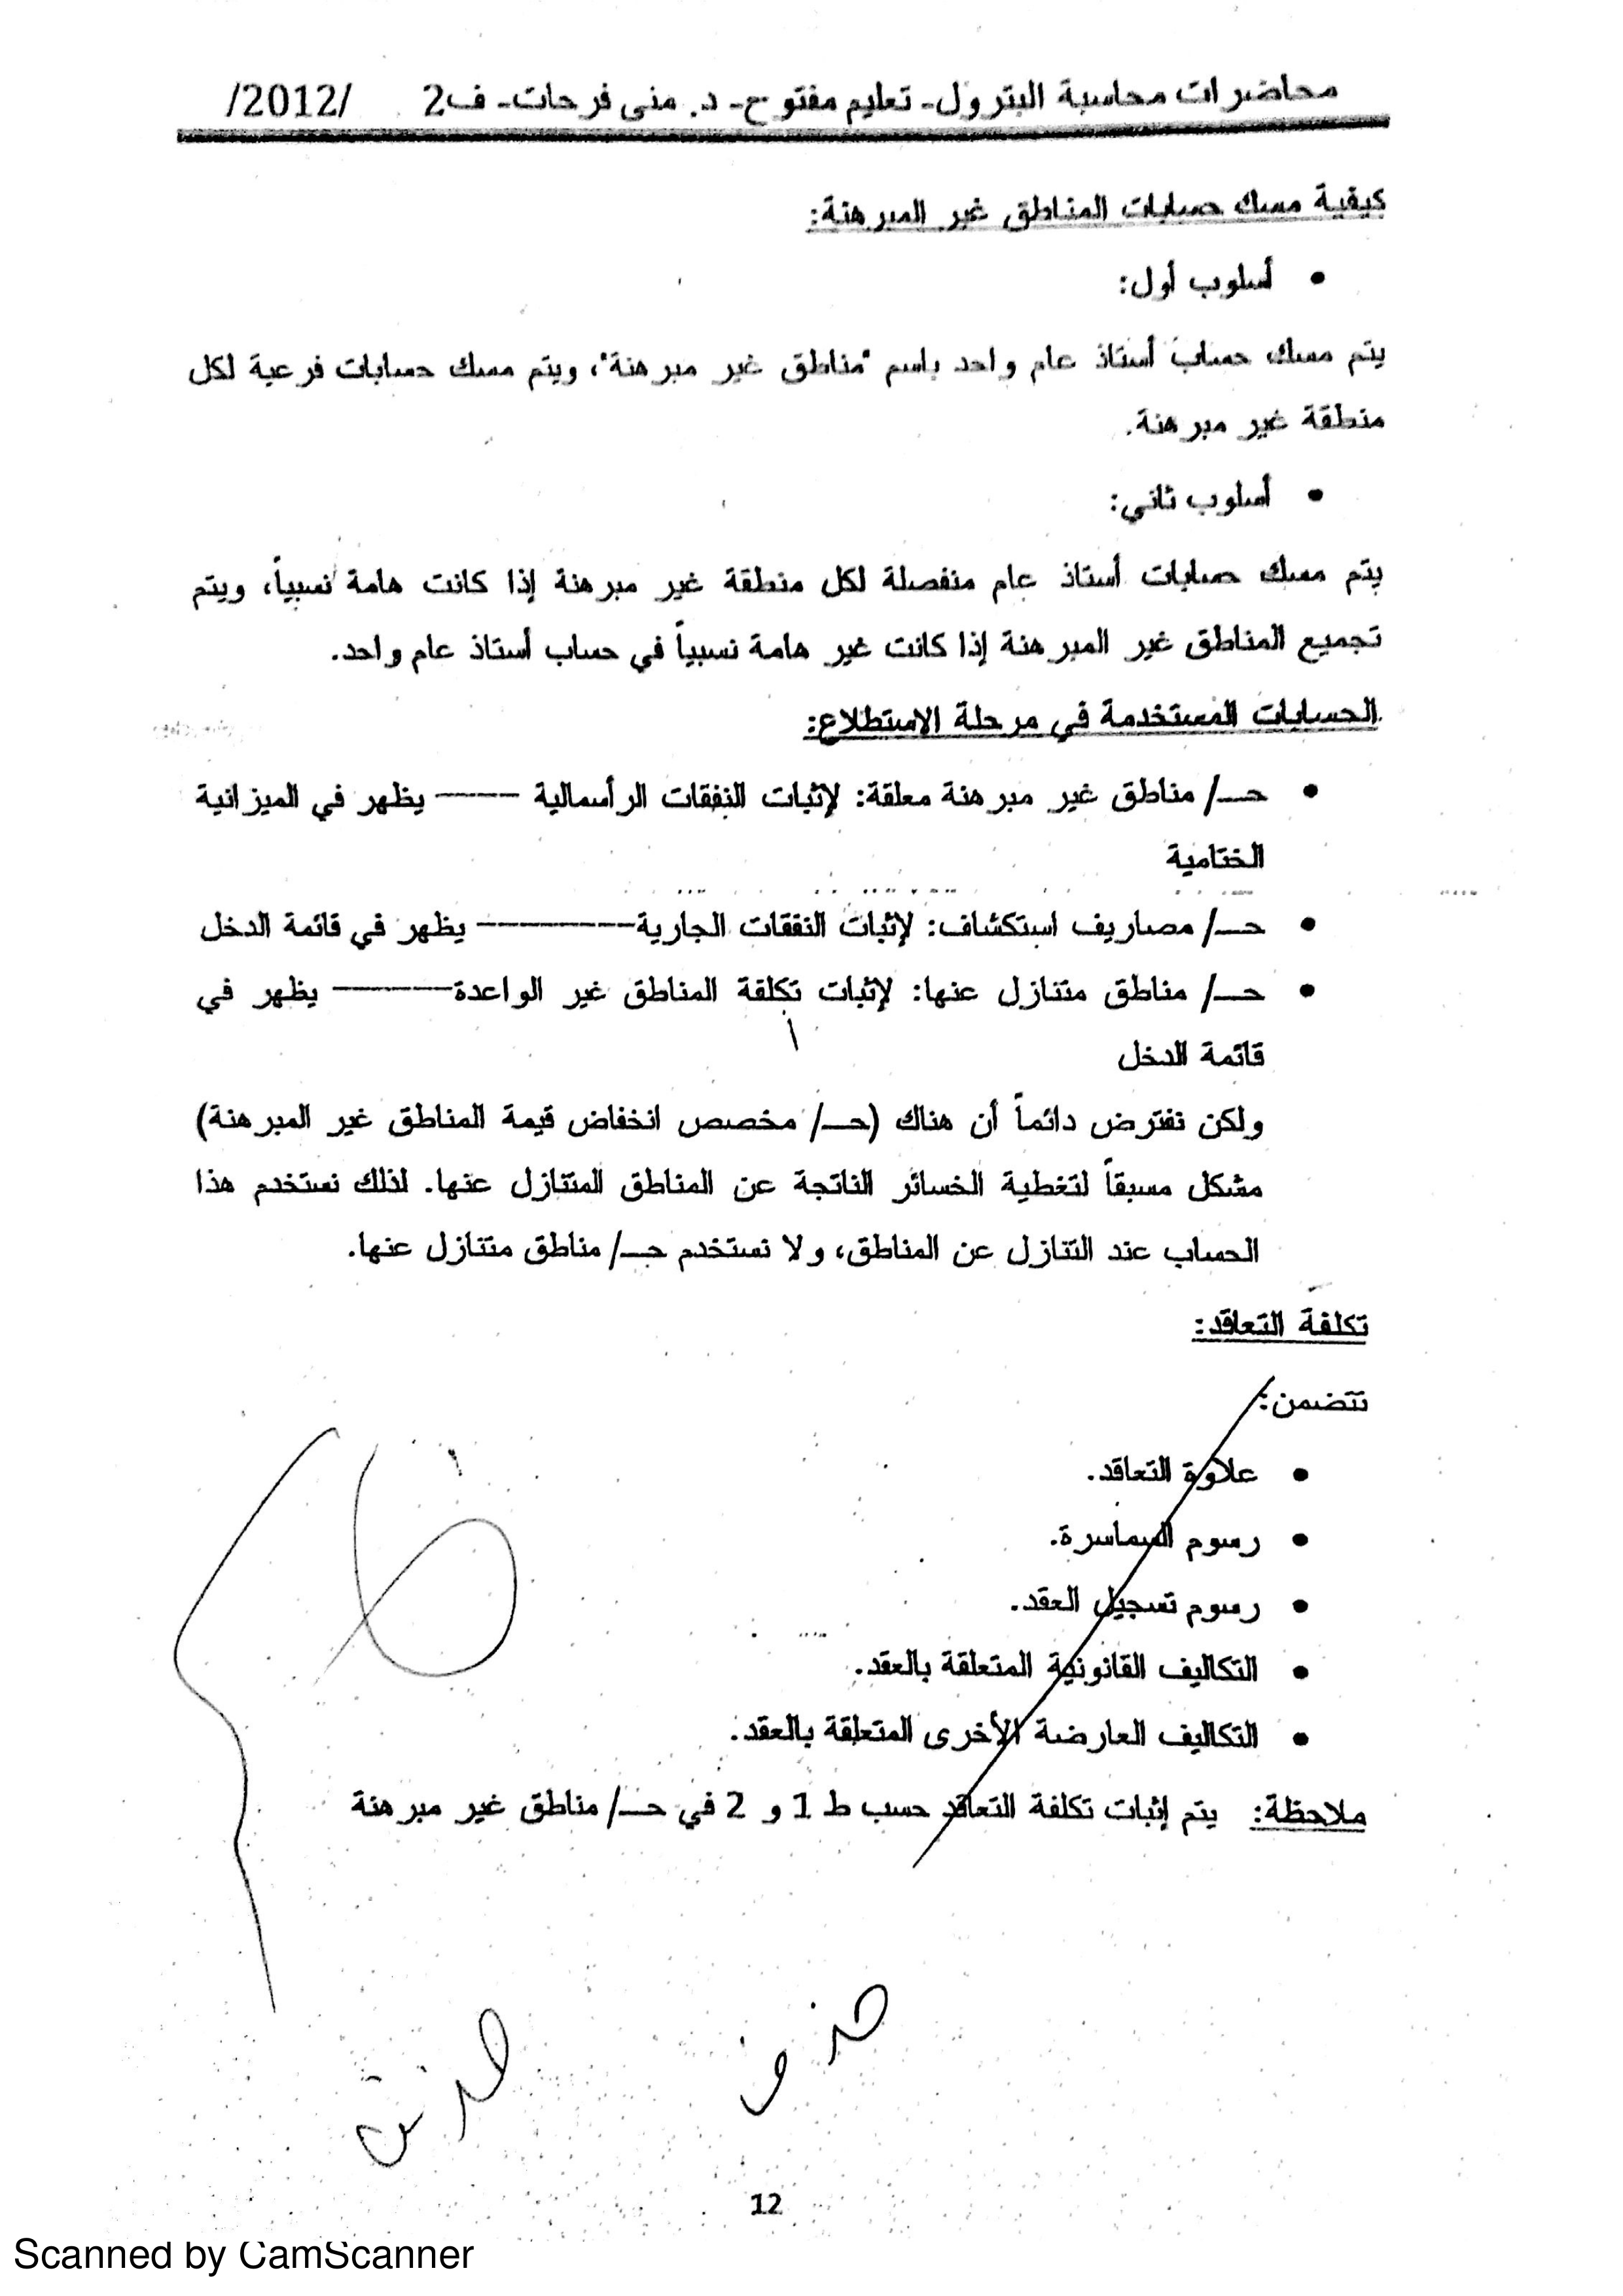 محاضرات محاسبة البترول- تعليم مفتوح- د. منى فرحات- ف2 /2012/
كيفية مسك حسابات المناطق غير المبرهنة:
• أسلوب أول:
يتم مسك حساب أستاذ عام واحد باسم "مناطق غير مبرهنة"، ويتم مسك حسابات فرعية لكل
منطقة غير مبرهنة.
• أسلوب ثاني:
يتم مسك حسابات أستاذ عام منفصلة لكل منطقة غير مبرهنة إذا كانت هامة نسبياً، ويتم
تجميع المناطق غير المبرهنة إذا كانت غير هامة نسبياً في حساب أستاذ عام واحد.
الحسابات المستخدمة في مرحلة الاستطلاع:
• حـ/ مناطق غير مبرهنة معلقة: لإثبات النفقات الرأسمالية ——— يظهر في الميزانية
الختامية
• حـ/ مصاريف استكشاف: لإثبات النفقات الجارية———— يظهر في قائمة الدخل
• حـ/ مناطق متنازل عنها: لإثبات تكلفة المناطق غير الواعدة———— يظهر في
قائمة الدخل
ولكن نفترض دائماً أن هناك (حـ/ مخصص انخفاض قيمة المناطق غير المبرهنة)
مشكل مسبقاً لتغطية الخسائر الناتجة عن المناطق المتنازل عنها. لذلك نستخدم هذا
الحساب عند التنازل عن المناطق، ولا نستخدم حـ/ مناطق متنازل عنها.
تكلفة التعاقد:
تتضمن:
• علاوة التعاقد.
• رسوم السماسرة.
• رسوم تسجيل العقد.
• التكاليف القانونية المتعلقة بالعقد.
• التكاليف العارضة الأخرى المتعلقة بالعقد.
ملاحظة: يتم إثبات تكلفة التعاقد حسب ط 1 و 2 في حـ/ مناطق غير مبرهنة
حذف
12
Scanned by CamScanner